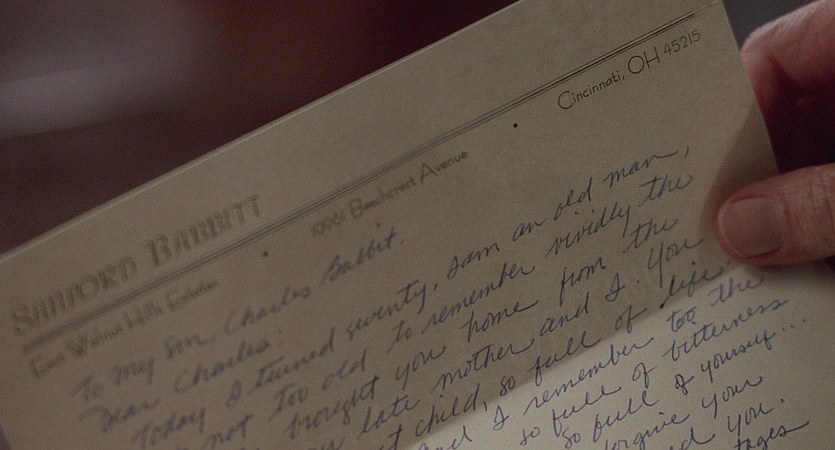 SANFORD BABBITT
East Walnut Hills Estates • 10961 Beechcrest Avenue • Cincinnati, OH 45215
To my son, Charles Babbit.
Dear Charles:
Today I turned seventy, I am an old man,
not too old to remember vividly the
brought you home from the
late mother and I. You
child, so full of life.
and I remember too the
so full of bitterness
so full of yourself...
forgive your
you.